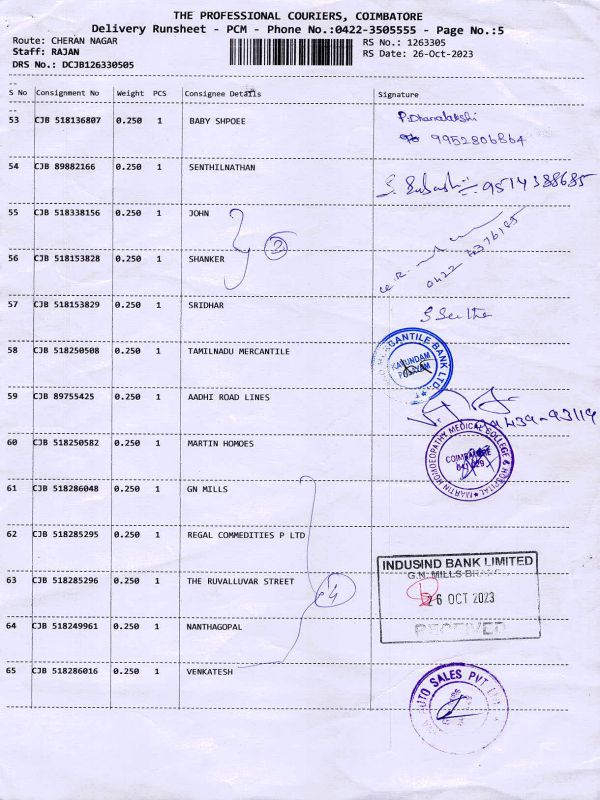 THE PROFESSIONAL COURIERS, COIMBATORE
Delivery Runsheet - PCM - Phone No.:0422-3505555 - Page No.:5
Route: CHERAN NAGAR
RS No.: 1263305
Staff: RAJAN
RS Date: 26-Oct-2023
DRS No.: DCJB126330505
S No Consignment No Weight PCS Consignee Details Signature
53 CJB 518136807 0.250 1 BABY SHPOEE P.Dhanalakshi
9952806864
54 CJB 89882166 0.250 1 SENTHILNATHAN 9514388685
55 CJB 518338156 0.250 1 JOHN
2
56 CJB 518153828 0.250 1 SHANKER 0422
57 CJB 518153829 0.250 1 SRIDHAR
58 CJB 518250508 0.250 1 TAMILNADU MERCANTILE
MERCANTILE BANK LTD.
KAVUNDAM
PALAYAM
59 CJB 89755425 0.250 1 AADHI ROAD LINES
60 CJB 518250582 0.250 1 MARTIN HOMOES
MARTIN HOMOEOPATHY MEDICAL COLLEGE & HOSPITAL
COIMBATORE
61 CJB 518286048 0.250 1 GN MILLS
62 CJB 518285295 0.250 1 REGAL COMMEDITIES P LTD
INDUSIND BANK LIMITED
G.N. MILLS
63 CJB 518285296 0.250 1 THE RUVALLUVAR STREET
4
26 OCT 2023
64 CJB 518249961 0.250 1 NANTHAGOPAL
RECEIVED
65 CJB 518286016 0.250 1 VENKATESH
AUTO SALES PVT